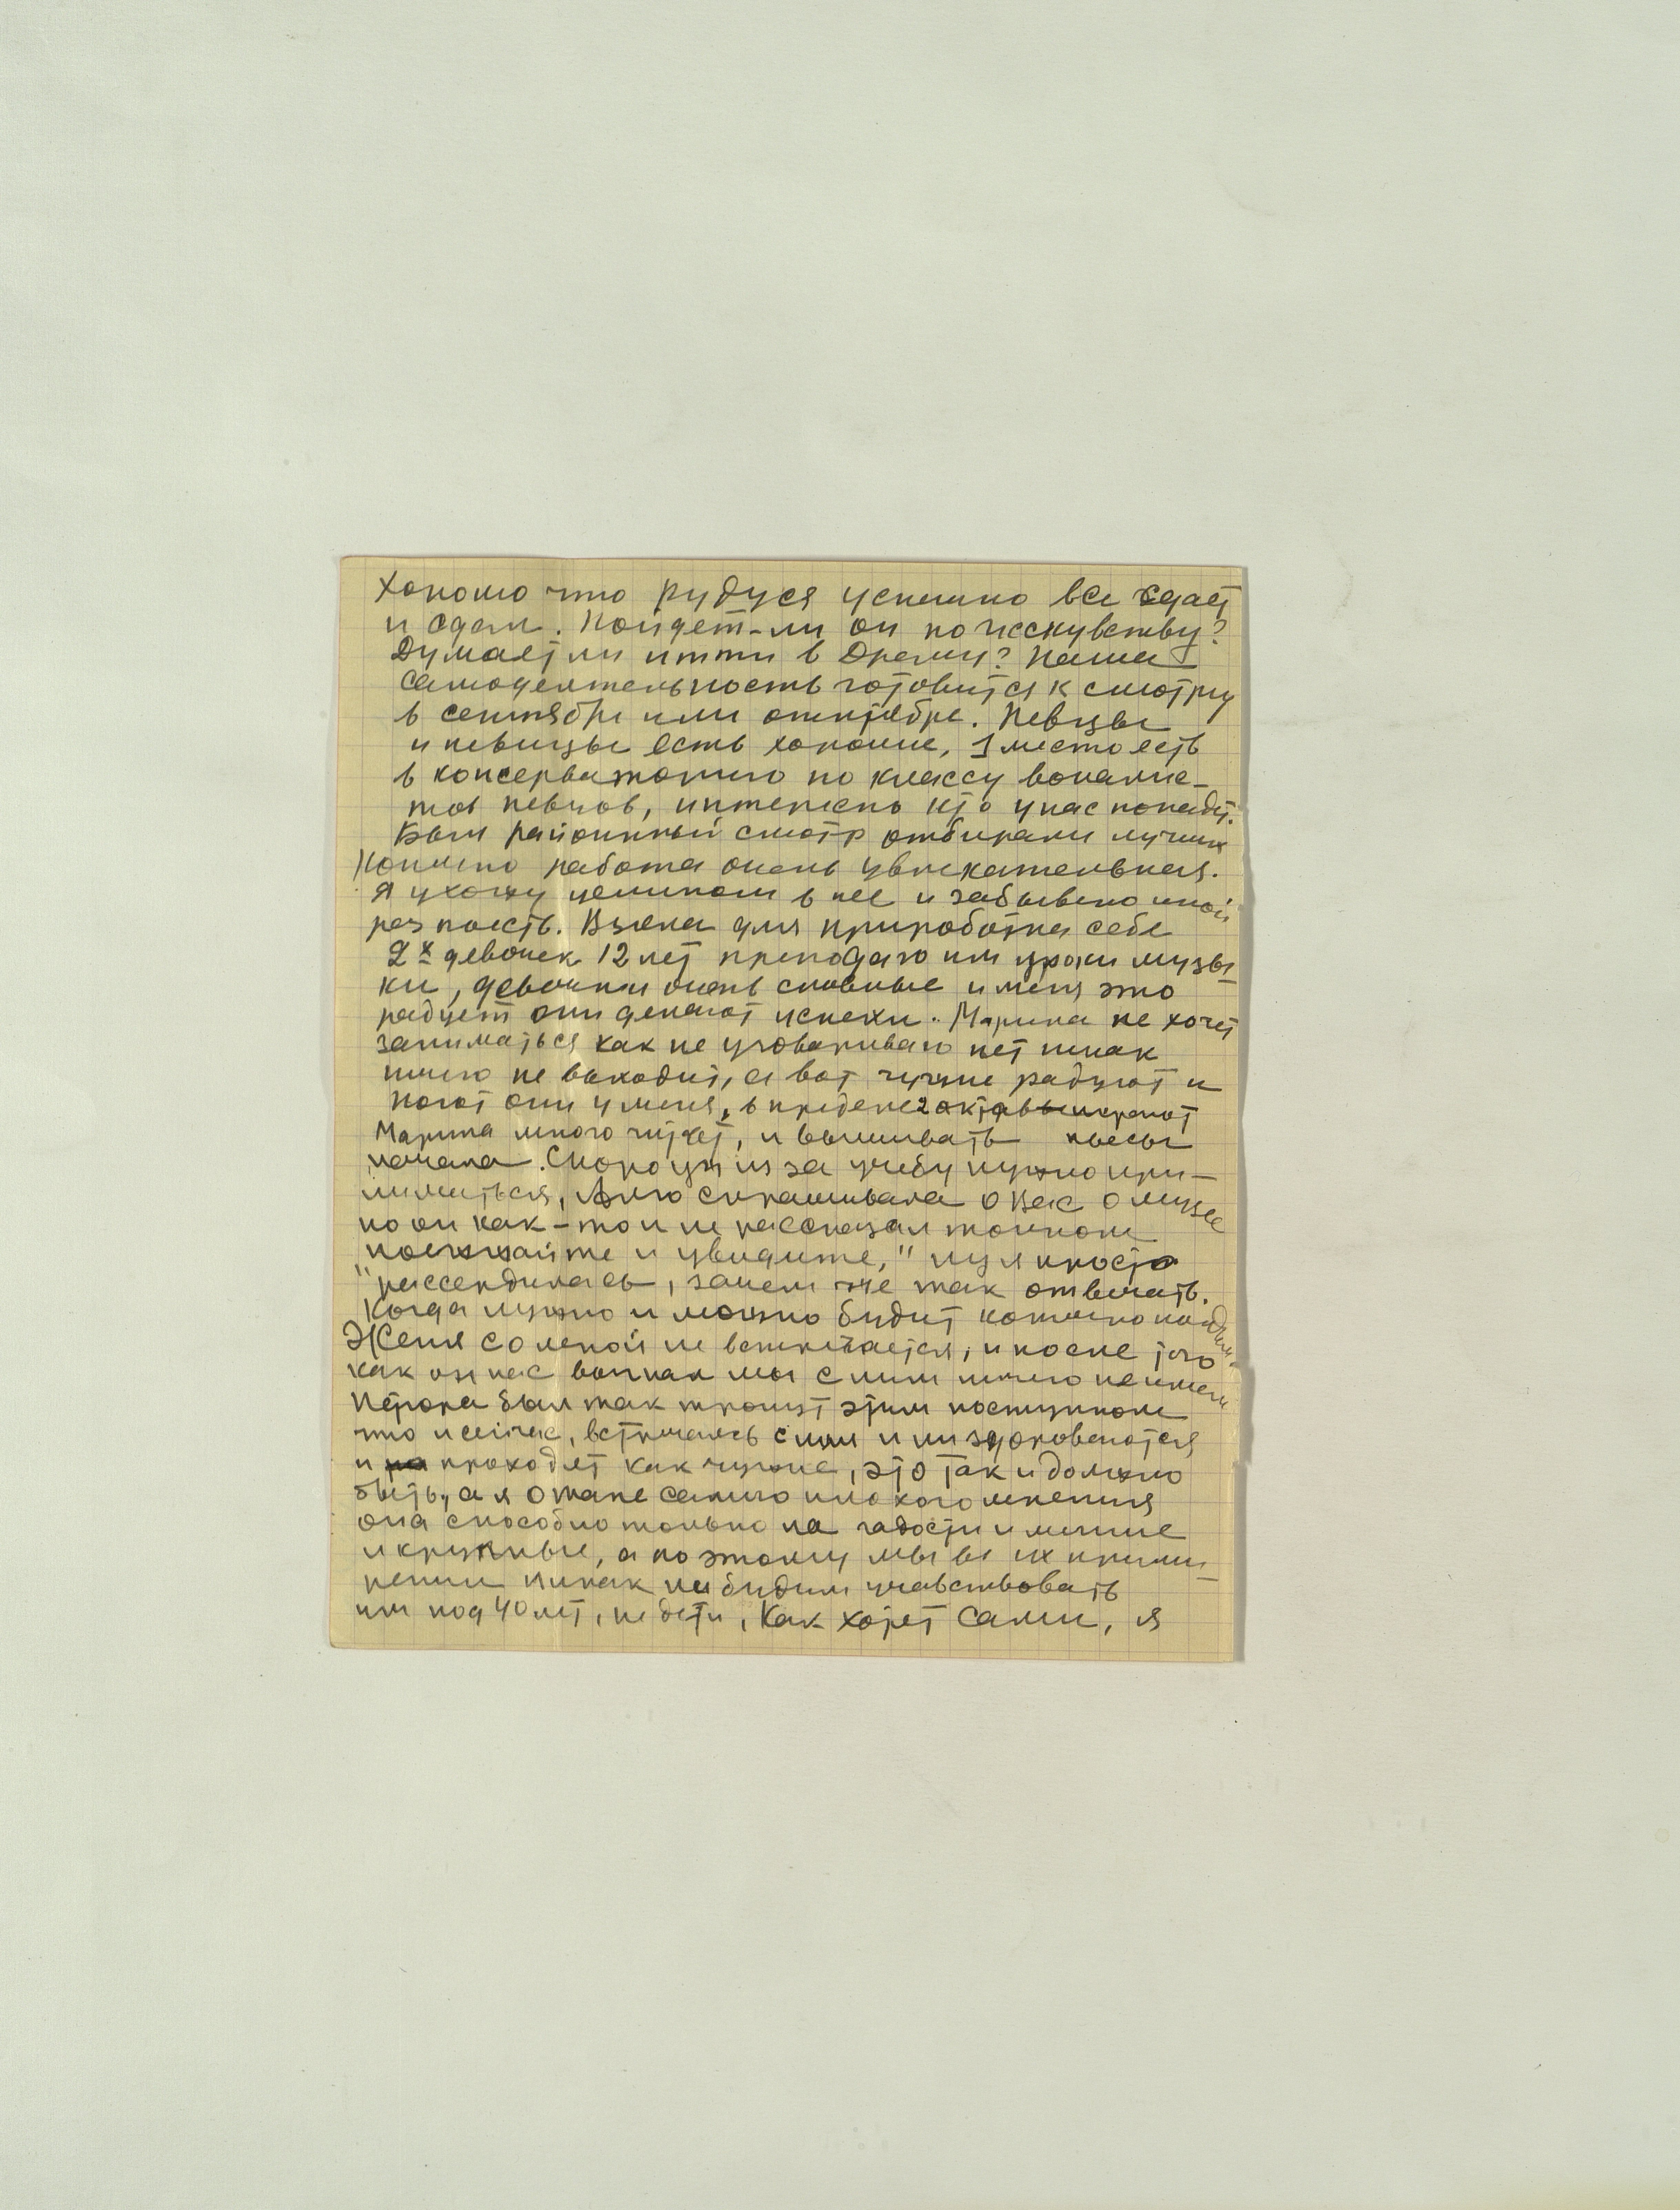 Хорошо что Рудуся успешно все сдает
и сдал. Пойдет-ли он по исскувству?
Думает ли итти в Драму? Наша
самодеятельность готовится к смотру
в сентябре или октябре. Певцы
и певицы есть хорошие, 1 место есть
в консерваторию по классу вокалис-
тов певцов, интересно кто у нас попадт.
Был районный смотр отбирали лучших
Конечно работа очень увлекательная.
Я ухожу целиком в нее и забываю иной
раз поесть. Взяла для приработка себе
2х девочек 12 лет преподаю им уроки музы-
ки, девочки очень способные и меня это
радует они делают успехи. Марина не хочет
заниматься как не уговариваю нет никак
ничего не выходит, а вот чужие радуют и
поют они у меня, в пределе 2 октав играют
Марина много читает, и вышивать пьесы
начала. Скоро уж из за учебу нужно при-
ниматься, Алю спрашивала о Вас о музее
но он как-то и не рассказал толком
"поезжайте и увидите," ну я просто
рассердилась, зачем же так отвечать.
Когда нужно и можно будит конечно поедим.
Женя со мной не встречается, и после того
как он нас выгнал мы с ним ничего не имеем
был так тронут этим поступком
что и сейчас, встречаясь с ним и ни здороваются
и проходят как чужие, это так и должно
быть, а я о самого плохого мнения
она способно только на гадости и мелкие
и крупные, а поэтому мы вы их прими-
рении никак не будим учавствовать
им под 40 лет, не дети, Как хотят сами, я